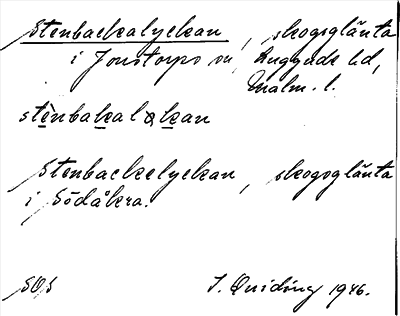 Stenbackalyckan, skogsglänta
i Jonstorps sn, Luggude hd,
Malm. l.
stènbakalykan
Stenbackelyckan, skogsglänta
i Södåkra.
SOS J. Quiding 1946.